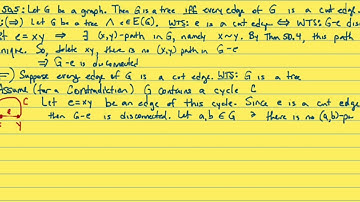 5D5: Let G be a graph. Then G is a tree iff every edge of G is a cut edge.
:(⇒) Let G be a tree ∧ e∈E(G). WTS: e is a cut edge ⟺ WTS: G-e disc
t e=xy ⇒ ∃ (x,y)-path in G, namely x~y. By Thm 5D.4, this path
nique. So, delete xy, there is no (x,y) path in G-e
⇒ G-e is disconnected
=) Suppose every edge of G is a cut edge. WTS: G is a tree
Assume (for a Contradiction) G contains a cycle C
C Let e=xy be an edge of this cycle. Since e is a cut edge
e
y then G-e is disconnected. Let a,b∈G ∋ there is no (a,b)-pa